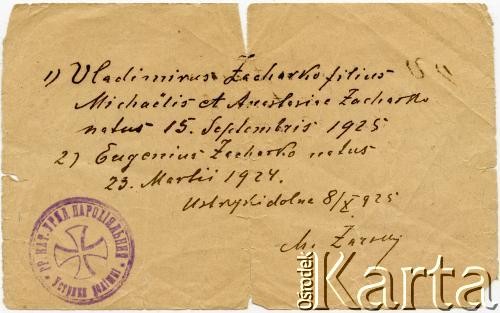 1) Vladimirus Zacharko filius
Michaëlis et Anastasiae Zacharko
natus 15. Septembris 1925
2) Eugenius Zacharko natus
23. Martii 1924.
Ustrzykidolne 8/X 925
ГР. КАТ. УРЯД ПАРОХІЯЛЬНИЙ
Устрики долішні
Ośrodek
Karta